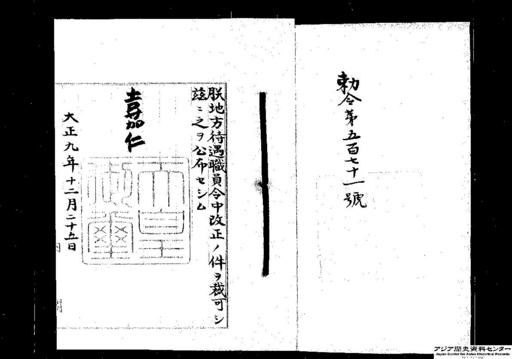 勅令第五百七十一號
朕地方待遇職員令中改正ノ件ヲ裁可シ
茲ニ之ヲ公布セシム
嘉仁
天皇御璽
大正九年十二月二十五日
アジア歴史資料センター
Japan Center for Asian Historical Records